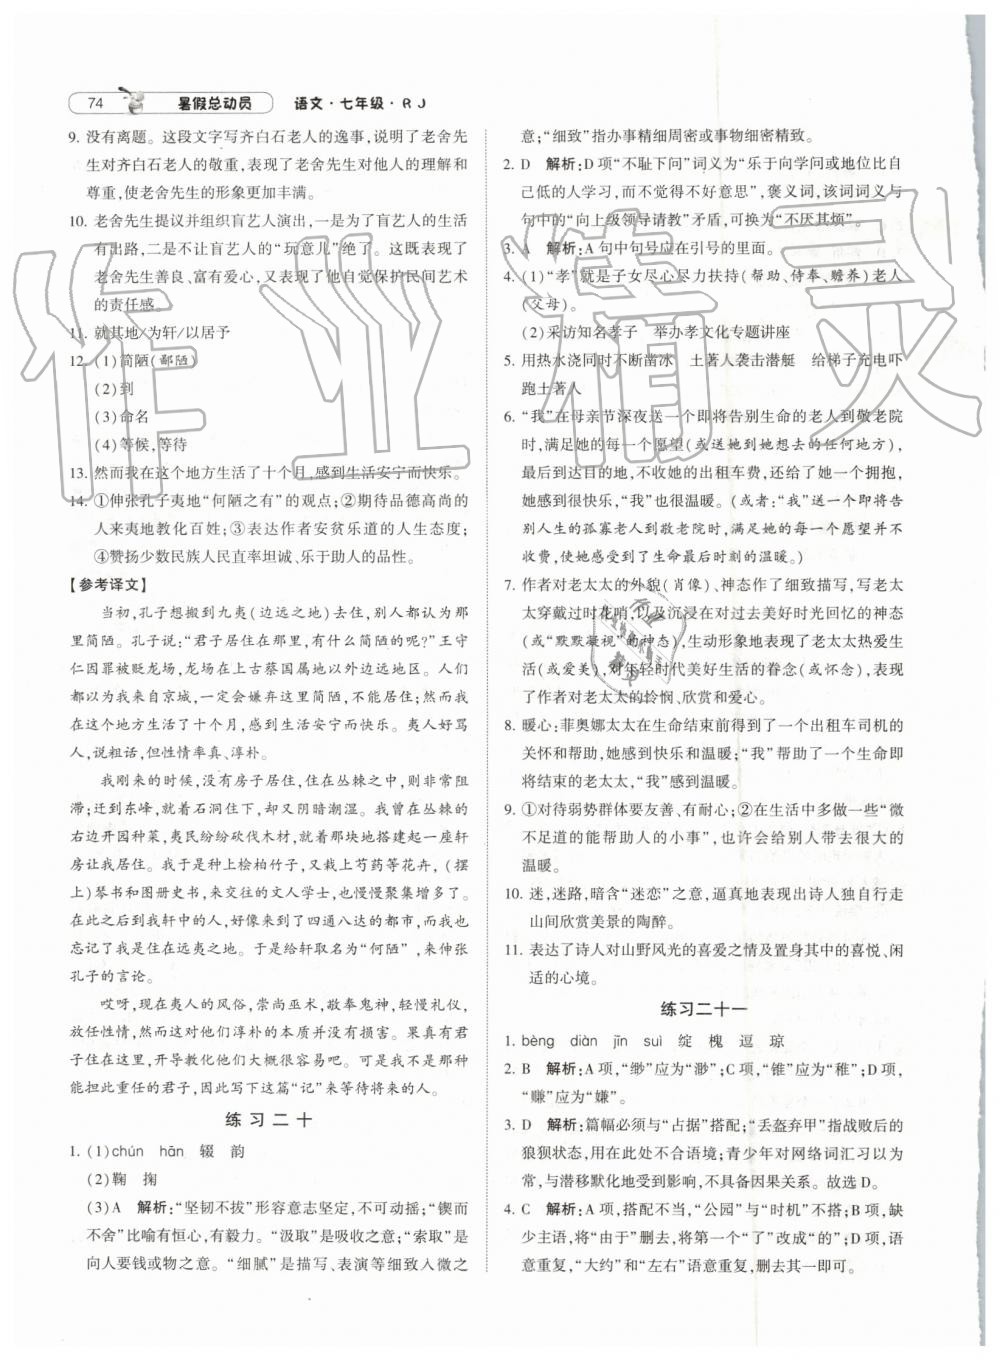 74 暑假总动员 语文·七年级·RJ
9. 没有离题。这段文字写齐白石老人的逸事,说明了老舍先
生对齐白石老人的敬重,表现了老舍先生对他人的理解和
尊重,使老舍先生的形象更加丰满。
10. 老舍先生提议并组织盲艺人演出,一是为了盲艺人的生活
有出路,二是不让盲艺人的“玩意儿”绝了。这都表现了
老舍先生善良、富有爱心,又对自觉保护民间艺术
的责任感。
11. 就其地/为轩/以居予
12. (1)简陋(鄙陋)
(2)到
(3)命名
(4)等候,等待
13. 然而我在这个地方生活了十个月,感到生活安宁而快乐。
14. ①伸张孔子夷地“何陋之有”的观点;②期待品德高尚的
人来夷地教化百姓;③表达作者安贫乐道的人生态度;
④赞扬少数民族人民直率坦诚、乐于助人的品性。
【参考译文】
当初,孔子想搬到九夷(边远之地)去住,别人都认为那
里简陋。孔子说:“君子居住在那里,有什么简陋的呢?”王守
仁因罪被贬龙场,龙场在上古蔡国属地以外边远地区。人们
都以为我来自京城,一定会嫌弃这里简陋,不能居住;然而我
在这个地方生活了十个月,感到生活安宁而快乐。夷人好骂
人,说粗话,但性情率真、淳朴。
我刚来的时候,没有房子居住,住在丛棘之中,则非常阻
滞;迁到东峰,就着石洞住下,却又阴暗潮湿。我曾在丛棘的
右边开园种菜,夷民纷纷砍伐木材,就着那块地搭建起一座轩
房让我居住。我于是种上桧柏竹子,又栽上芍药等花卉,(摆
上)琴书和图册史书,来交往的文人学士,也慢慢聚集增多了。
在此之后到我轩中的人,好像来到了四通八达的都市,而我也
忘记了我是住在远夷之地。于是给轩取名为“何陋”,来伸张
孔子的言论。
哎呀,现在夷人的风俗,崇尚巫术,敬奉鬼神,轻慢礼仪,
放任性情,然而这对他们淳朴的本质并没有损害。果真有君
子住在这里,开导教化他们大概很容易吧。可我不是那种
能担此重任的君子,因此写下这篇“记”来等待将来者。
练习二十
1. (1)chún hān 辍 韵
(2)鞠 掬
(3)A 解析:“坚韧不拔”形容意志坚定,不可动摇;“锲而
不舍”比喻有恒心,有毅力。“汲取”是吸收之意;“索取”是
向人要钱或物之意。“细腻”是描写、表演等细致入微之
意;“细致”指办事精细周密或事物细密精致。
2. D 解析:D项“不耻下问”词义为“乐于向学问或地位比自
己低的人学习,而不觉得不好意思”,褒义词,该词词义与
句中的“向上级领导请教”矛盾,可换为“不厌其烦”。
3. A 解析:A句中句号应在引号的里面。
4. (1)“孝”就是子女尽心尽力扶持(帮助、侍奉、赡养)老人
(父母)。
(2)采访知名孝子 举办孝文化专题讲座
5. 用热水浇同时不断凿冰 土著人袭击潜艇 给梯子充电吓
跑土著人
6. “我”在母亲节深夜送一个即将告别生命的老人到敬老院
时,满足她的每一个愿望(或送她到她想去的任何地方),
最后到达目的地,不收她的出租车费,还给了她一个拥抱,
她感到很快乐,“我”也很温暖。(或者:“我”送一个即将告
别人生的孤寡老人到敬老院时,满足她的每一个愿望并不
收费,使她感受到了生命最后时刻的温暖。)
7. 作者对老太太的外貌(肖像)、神态作了细致描写,写老太
太穿戴过时花哨,以及沉浸在对过去美好时光回忆的神态
(或“默默凝视”的神态),生动形象地表现了老太太热爱生
活(或爱美),对年轻时代美好生活的眷念(或怀念),表现
了作者对老太太的怜悯、欣赏和爱心。
8. 暖心:菲奥娜太太在生命结束前得到了一个出租车司机的
关怀和帮助,她感到快乐和温暖;“我”帮助了一个生命即
将结束的老太太,“我”感到温暖。
9. ①对待弱势群体要友善、有耐心;②在生活中多做一些“微
不足道的能帮助人的小事”,也许会给别人带去很大的
温暖。
10. 迷,迷路,暗含“迷恋”之意,逼真地表现出诗人独自行走
山间欣赏美景的陶醉。
11. 表达了诗人对山野风光的喜爱之情及置身其中的喜悦、闲
适的心境。
练习二十一
1. bèng diàn jīn suì 绽 槐 逗 琼
2. B 解析:A项,“缈”应为“渺”;C项,“锥”应为“稚”;D项,
“赚”应为“嫌”。
3. D 解析:篇幅必须与“占据”搭配;“丢盔弃甲”指战败后的
狼狈状态,用在此处不合语境;青少年对网络词汇习以为
常,与潜移默化地受到影响,不具备因果关系。故选D。
4. C 解析:A项,搭配不当,“公园”与“时机”不搭;B项,缺
少主语,应将“由于”删去,将第一个“了”改成“的”;D项,语
意重复,“大约”和“左右”语意重复,删去其一即可。
作业精灵